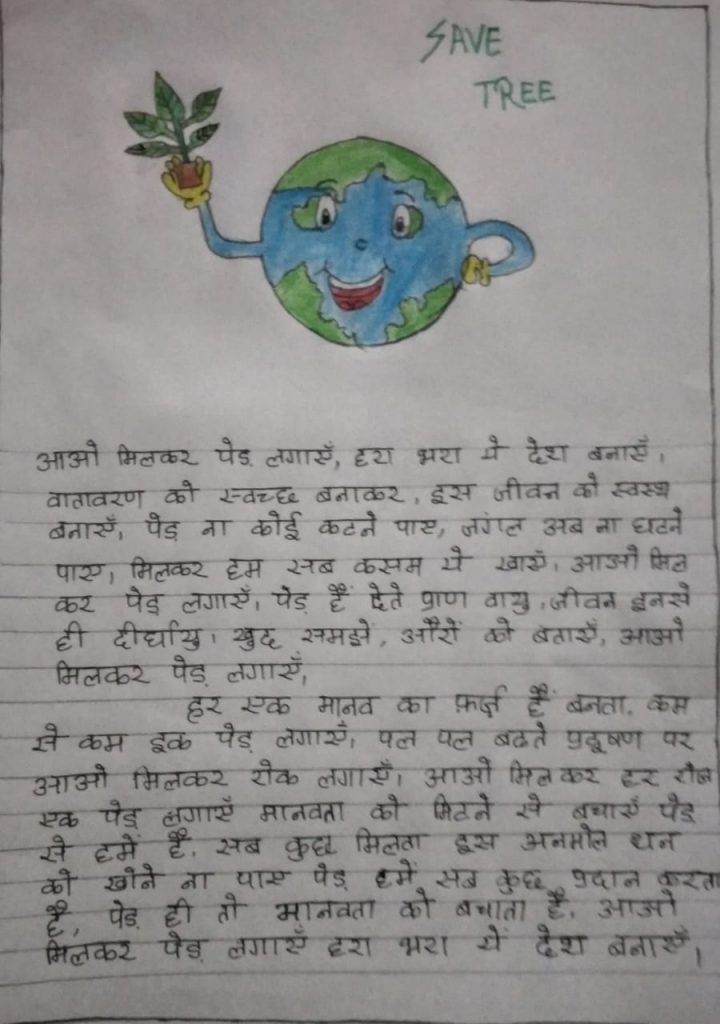 SAVE
TREE
आओ मिलकर पेड़ लगाएँ, हरा भरा ये देश बनाएँ,
वातावरण को स्वच्छ बनाकर, इस जीवन को स्वस्थ
बनाएँ, पेड़ ना कोई कटने पाए, जगंल अब ना घटने
पाए, मिलकर हम सब कसम ये खाएँ, आओ मिल
कर पेड़ लगाएँ, पेड़ हैं देते प्राण वायु, जीवन इनसे
ही दीर्घायु, खुद समझें, औरों को बताएँ, आओ
मिलकर पेड़ लगाएँ,
हर एक मानव का फ़र्ज़ हैं बनता, कम
से कम इक पेड़ लगाएँ, पल पल बढते प्रदूषण पर
आओ मिलकर रोक लगाएँ, आओ मिलकर हर रोज
एक पेड़ लगाएँ मानवता को मिटने से बचाएँ पेड़
से हमें है, सब कुछ मिलता इस अनमोल धन
को खोने ना पाए पेड़ हमें सब कुछ प्रदान करता
है, पेड़ ही तो मानवता को बचाता है, आओ
मिलकर पेड़ लगाएँ हरा भरा यें देश बनाएँ,